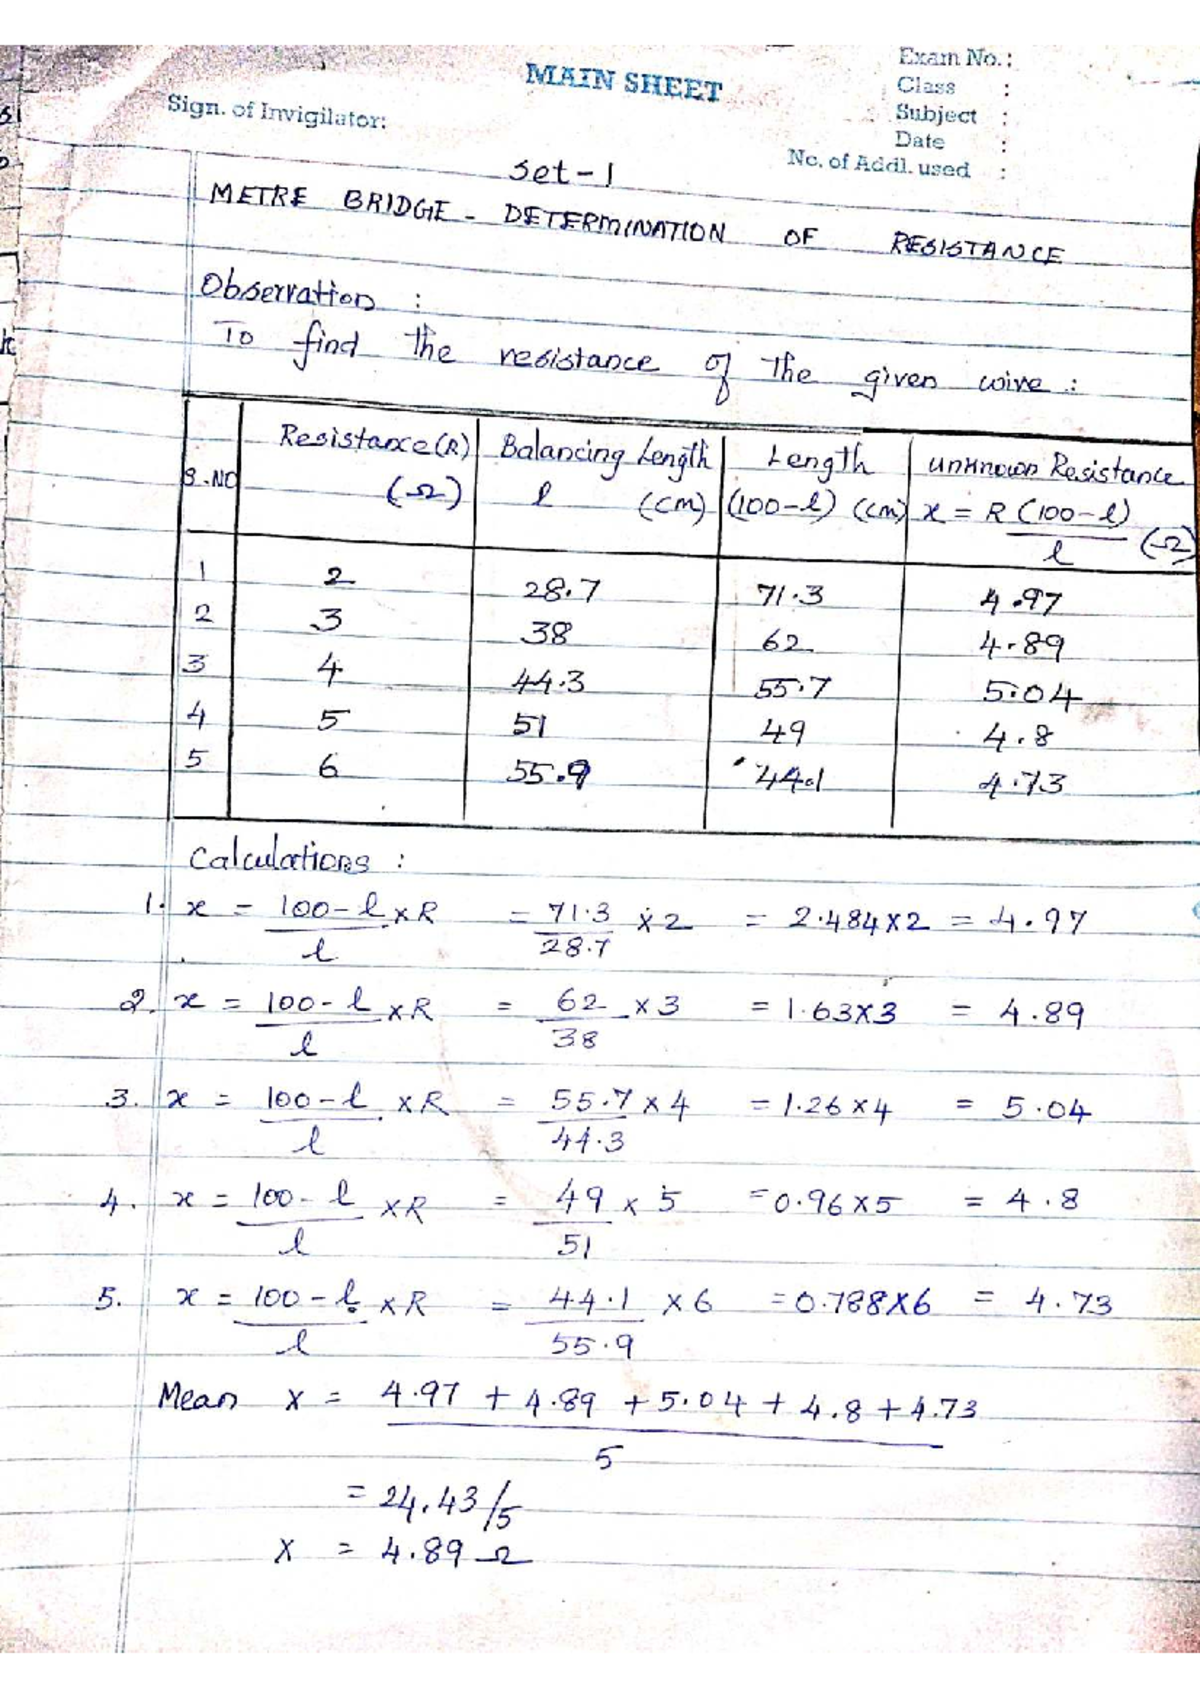 MAIN SHEET
Exam No. :
Class :
Subject :
Date :
No. of Addl. used :
Sign. of Invigilator:
Set - 1
METRE BRIDGE - DETERMINATION OF RESISTANCE
Observation :
To find the resistance of the given wire :
S.NO Resistance(R) (Ω) Balancing Length l (cm) Length (100-l) (cm) unknown Resistance x = R (100-l) / l (Ω)
1 2 28.7 71.3 4.97
2 3 38 62 4.89
3 4 44.3 55.7 5.04
4 5 51 49 4.8
5 6 55.9 44.1 4.73
Calculations :
1. x = 100-l / l × R = 71.3 / 28.7 × 2 = 2.484×2 = 4.97
2. x = 100-l / l × R = 62 / 38 × 3 = 1.63×3 = 4.89
3. x = 100-l / l × R = 55.7 / 44.3 × 4 = 1.26×4 = 5.04
4. x = 100-l / l × R = 49 / 51 × 5 = 0.96×5 = 4.8
5. x = 100-l / l × R = 44.1 / 55.9 × 6 = 0.788×6 = 4.73
Mean X = 4.97 + 4.89 + 5.04 + 4.8 + 4.73
5
= 24.43/5
X = 4.89 Ω